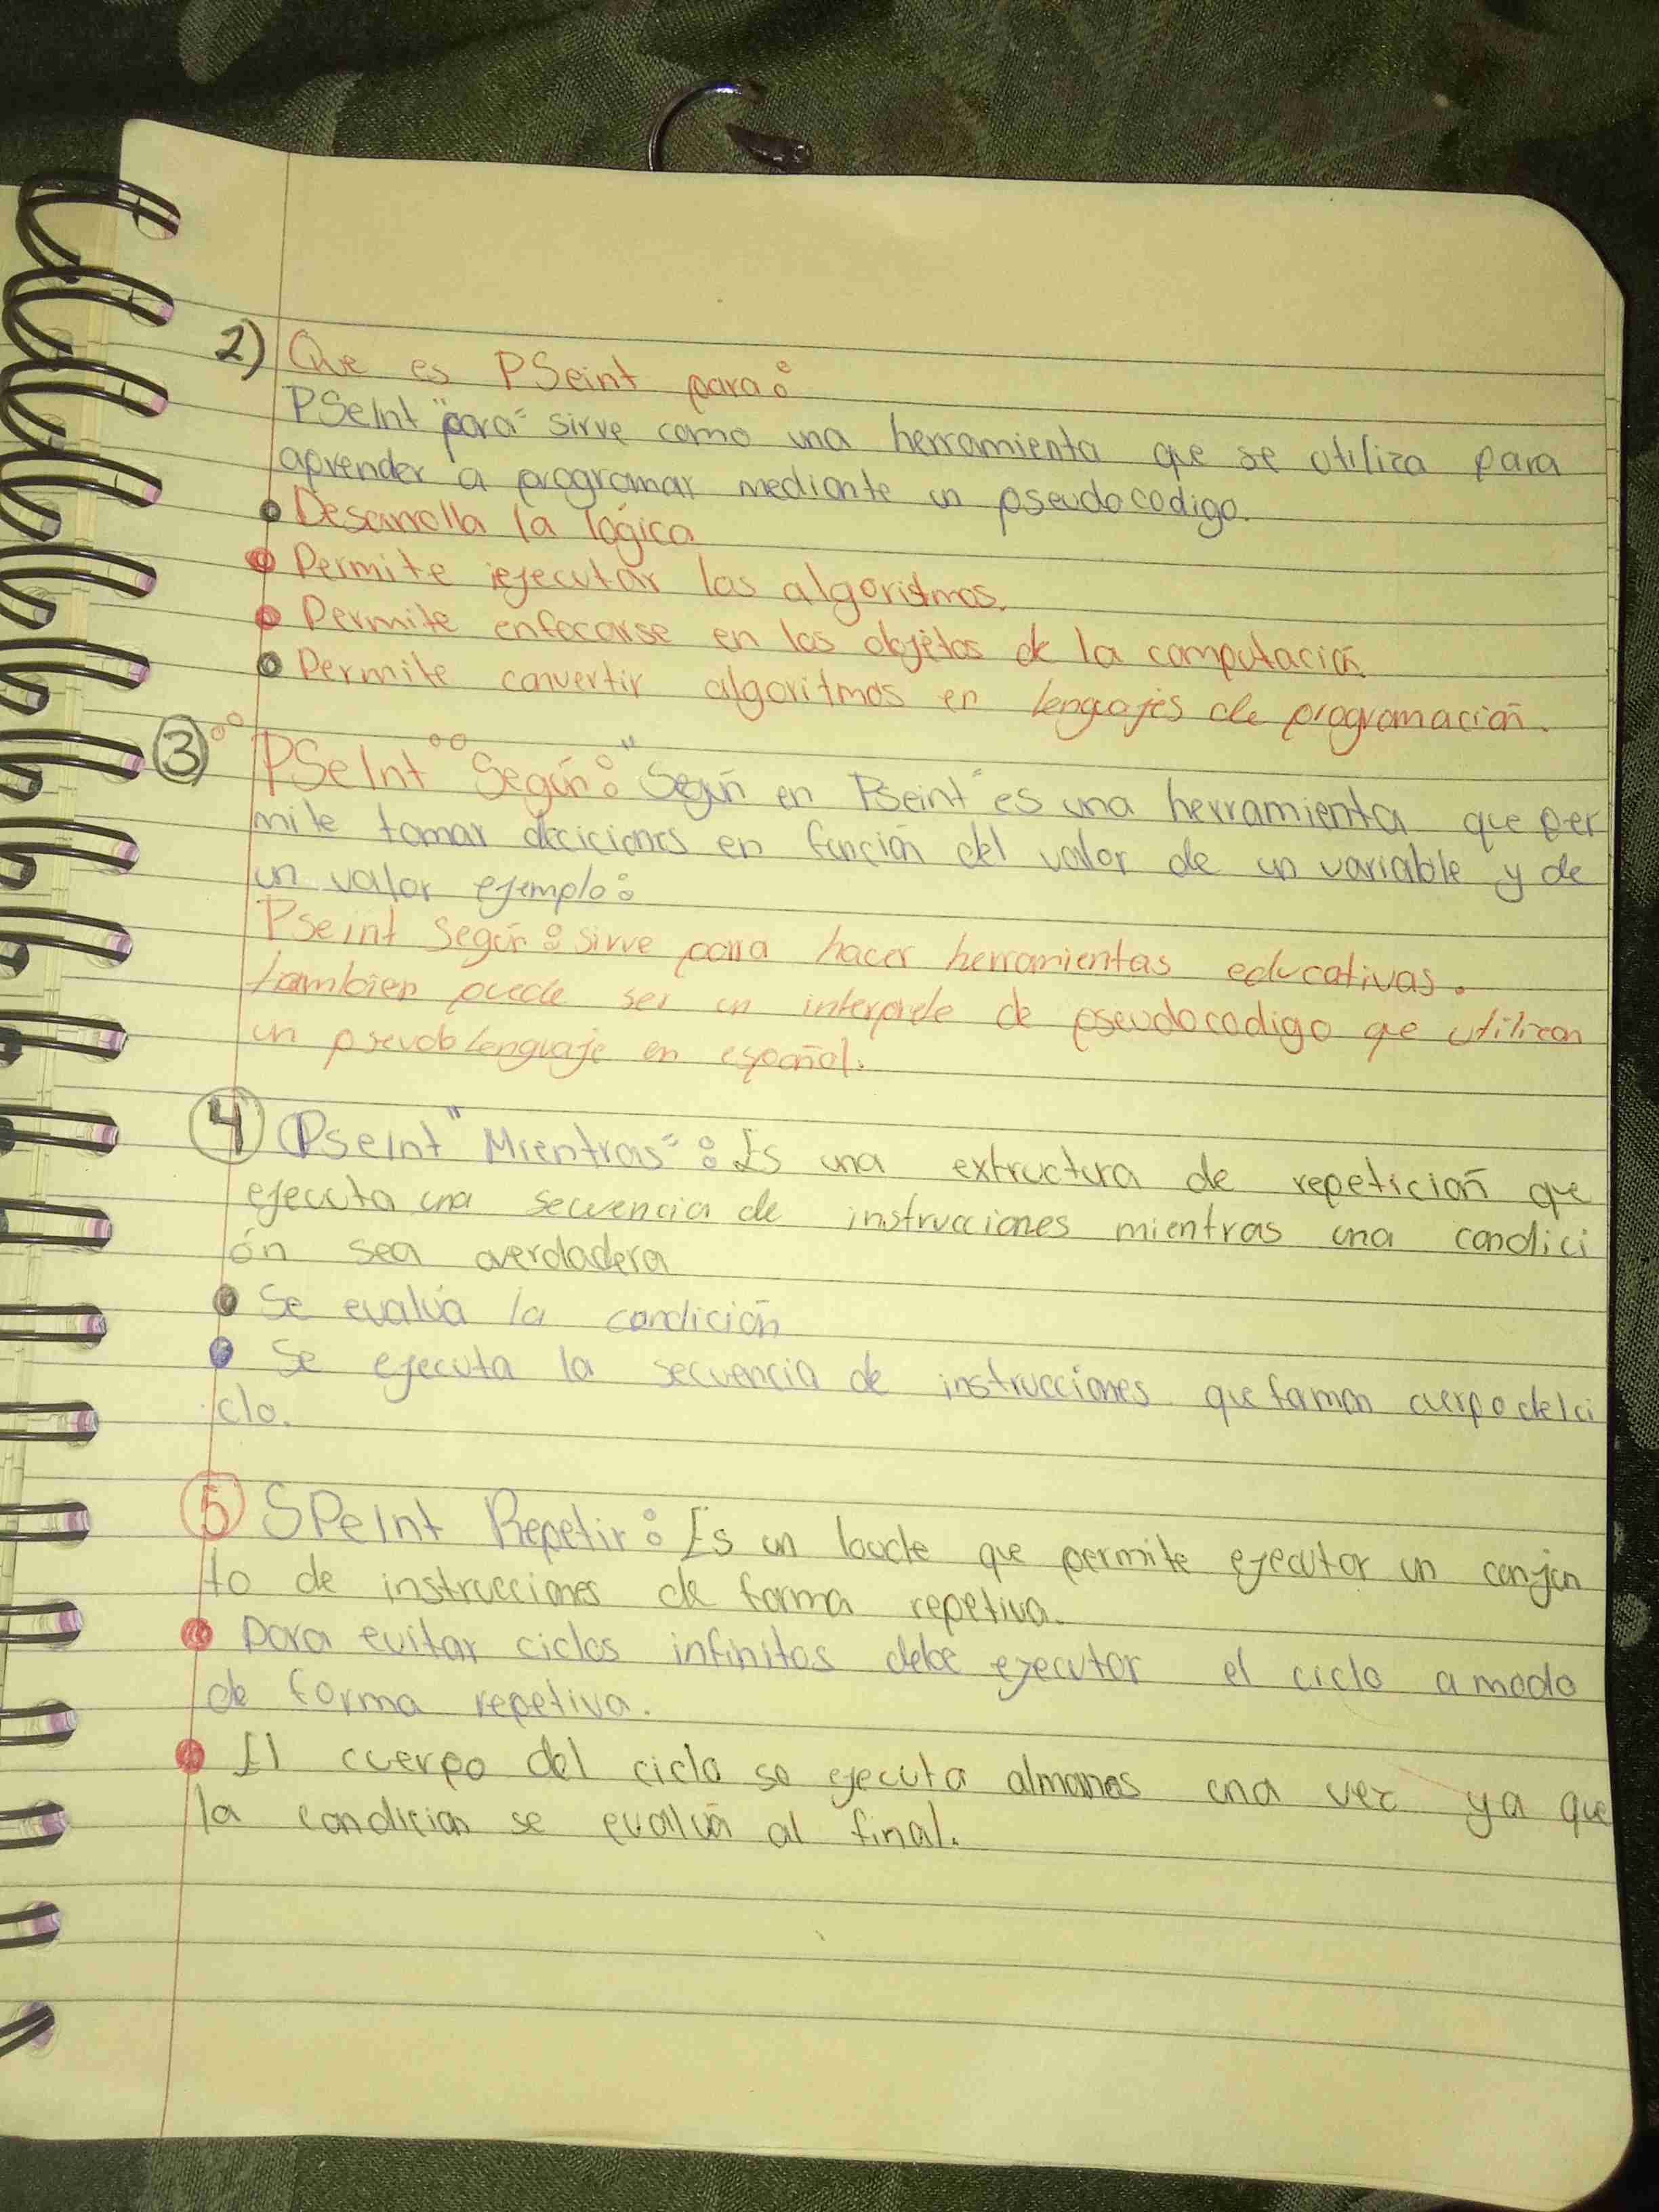 2) Que es PSeint para:
PSeInt "para" sirve como una herramienta que se utiliza para
aprender a programar mediante un pseudocodigo.
• Desarrolla la lógica
• Permite ejecutar los algoristmos.
• Permite enfocarse en los objetos de la computación.
• Permite convertir algoritmos en lenguajes de programación.
3 PSeInt "Según:" Según en Pseint es una herramienta que per
mite tomar deciciones en función del valor de un variable y de
un valor ejemplo:
Pseint Según: sirve para hacer herramientas educativas.
tambien puede ser un interprete de pseudocodigo que utilizan
un en español.
4 Pseint "Mientras": Es una extructura de repetición que
ejecuta una secuencia de instrucciones mientras una condici
ón sea averdadera
• Se evalúa la condición
• Se ejecuta la secuencia de instrucciones que forman cuerpo del ci
clo.
5 SPeInt Repetir: Es un que permite ejecutar un conjun
to de instrucciones de forma repetiva.
• para evitar ciclos infinitos debe ejecutar el ciclo a modo
de forma repetiva.
• El cuerpo del ciclo se ejecuta almenos una vez ya que
la condición se evalúa al final.